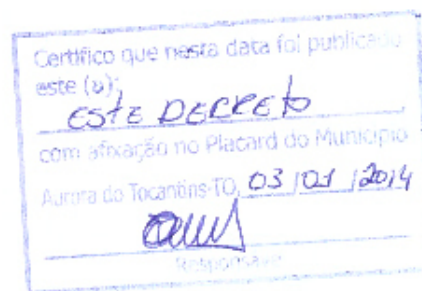 Certifico que nesta data foi publicado
este (a):
ESTE DECRETO
com afixação no Placard do Município
Aurora do Tocantins-TO, 03/01/2014
Responsável